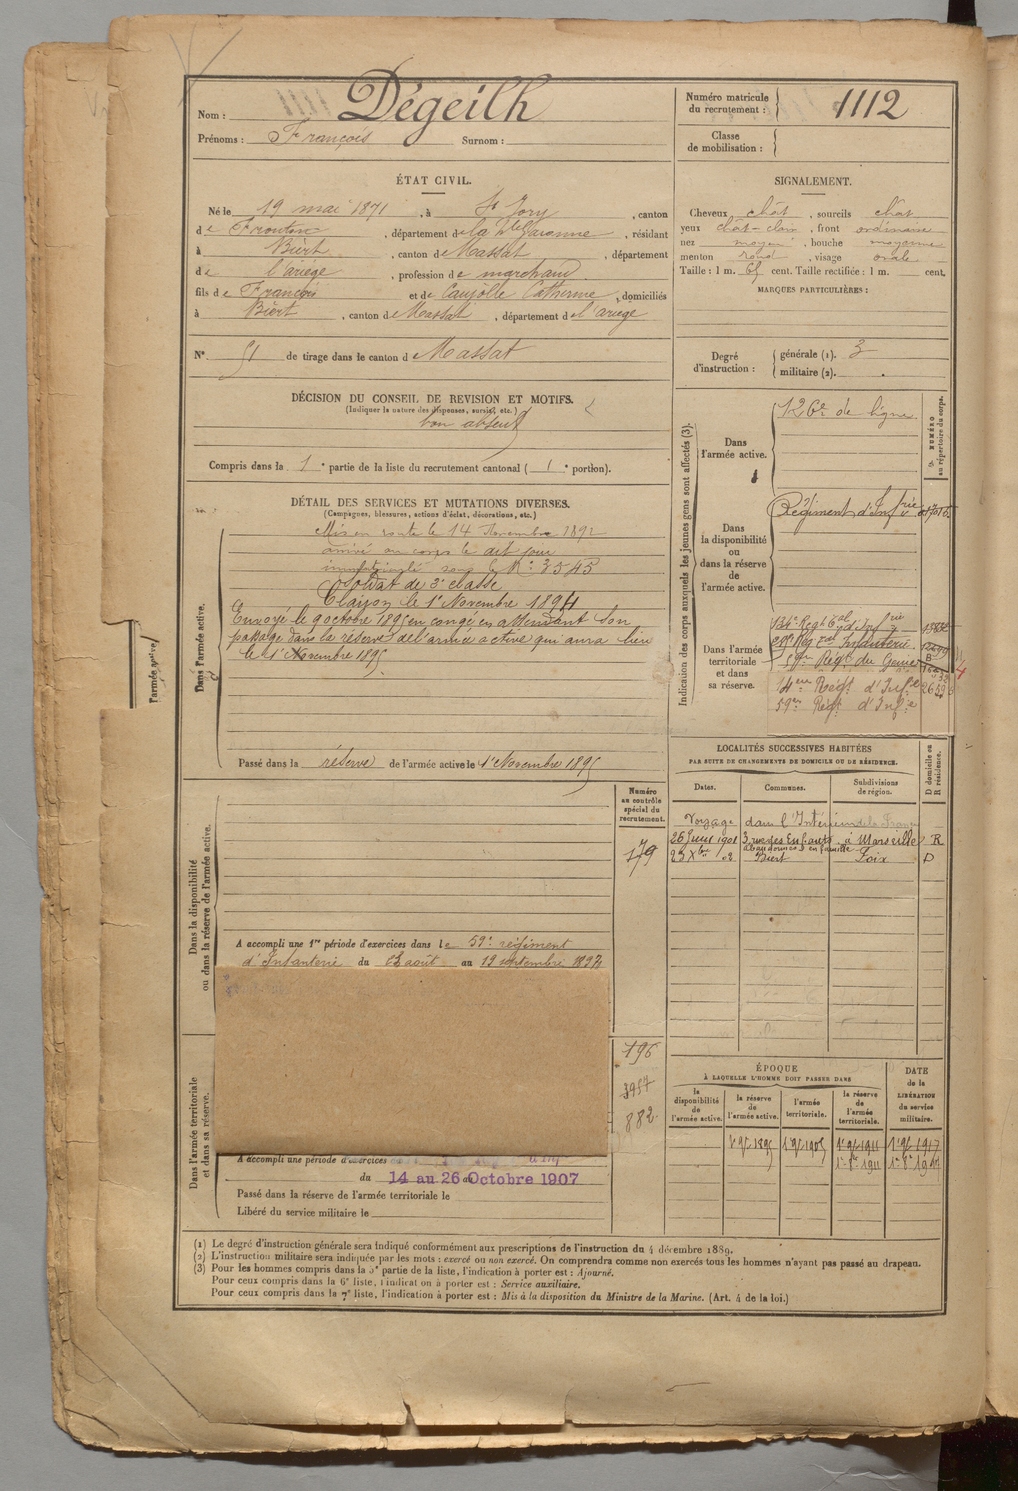 Nom : Dégeilh
Prénoms : François Surnom :
Numéro matricule du recrutement : 1112
Classe de mobilisation :
ÉTAT CIVIL.
Né le 19 mai 1871, à St Jory, canton
de Fronton, département de la Hte Garonne, résidant
à Biert, canton de Massat, département
de l'ariege, profession de marchand
fils de François et de Caujolle Catherine, domiciliés
à Biert, canton de Massat, département de l'ariege
N° 51 de tirage dans le canton de Massat
SIGNALEMENT.
Cheveux chat, sourcils chat
yeux chat-clair, front ordinaire
nez moyen, bouche moyenne
menton rond, visage ovale
Taille : 1 m. 65 cent. Taille rectifiée : 1 m. cent.
MARQUES PARTICULIÈRES :
Degré d'instruction : générale (1). 3
militaire (2).
DÉCISION DU CONSEIL DE REVISION ET MOTIFS.
(Indiquer la nature des dispenses, sursis, etc.)
bon absent
Compris dans la 1e partie de la liste du recrutement cantonal (1e portion).
DÉTAIL DES SERVICES ET MUTATIONS DIVERSES.
(Campagnes, blessures, actions d'éclat, décorations, etc.)
Dans l'armée active.
Mis en route le 14 Novembre 1892
arrivé au corps le dit jour
immatriculé sous le N° 3545
Soldat de 2e classe
Clairon le 1er Novembre 1894
Envoyé le 9 octobre 1895 en congé en attendant son
passage dans la réserve de l'armée active qui aura lieu
le 1er Novembre 1895
Passé dans la réserve de l'armée active le 1er Novembre 1895
Indication des corps auxquels les jeunes gens sont affectés (3).
NUMÉRO au répertoire du corps.
Dans l'armée active.
126e de ligne
Dans la disponibilité ou dans la réserve de l'armée active.
Régiment d'Infrie
Dans l'armée territoriale et dans sa réserve.
134e Regt Cal d'Infrie
Infanterie
Régt du Génie
14ème Régt d'Infie
59e Régt d'Infie
LOCALITÉS SUCCESSIVES HABITÉES
PAR SUITE DE CHANGEMENTS DE DOMICILE OU DE RÉSIDENCE.
Dates. Communes. Subdivisions de région. D domicile ou R résidence.
Voyage dans l'Intérieur de la France
26 Juin 1901 3 rue des Enfants abandonnés en famille à Marseille R
23 Xbre 02 Biert Foix D
Numéro au contrôle spécial du recrutement.
179
Dans la disponibilité ou dans la réserve de l'armée active.
A accompli une 1re période d'exercices dans le 59e régiment
d'Infanterie du 23 août au 19 septembre 1897
196
3957
882
Dans l'armée territoriale et dans sa réserve.
A accompli une période d'exercices
du 14 au 26 Octobre 1907
Passé dans la réserve de l'armée territoriale le
Libéré du service militaire le
ÉPOQUE
À LAQUELLE L'HOMME DOIT PASSER DANS
la disponibilité de l'armée active. la réserve de l'armée active. l'armée territoriale. la réserve de l'armée territoriale.
DATE de la LIBÉRATION du service militaire.
1er 9bre 1895 1er 9bre 1905 1er 9bre 1911 1er 9bre 1917
(1) Le degré d'instruction générale sera indiqué conformément aux prescriptions de l'instruction du 4 décembre 1889.
(2) L'instruction militaire sera indiquée par les mots : exercé ou non exercé. On comprendra comme non exercés tous les hommes n'ayant pas passé au drapeau.
(3) Pour les hommes compris dans la 5e partie de la liste, l'indication à porter est : Ajourné.
Pour ceux compris dans la 6e liste, l'indication à porter est : Service auxiliaire.
Pour ceux compris dans la 7e liste, l'indication à porter est : Mis à la disposition du Ministre de la Marine. (Art. 4 de la loi.)